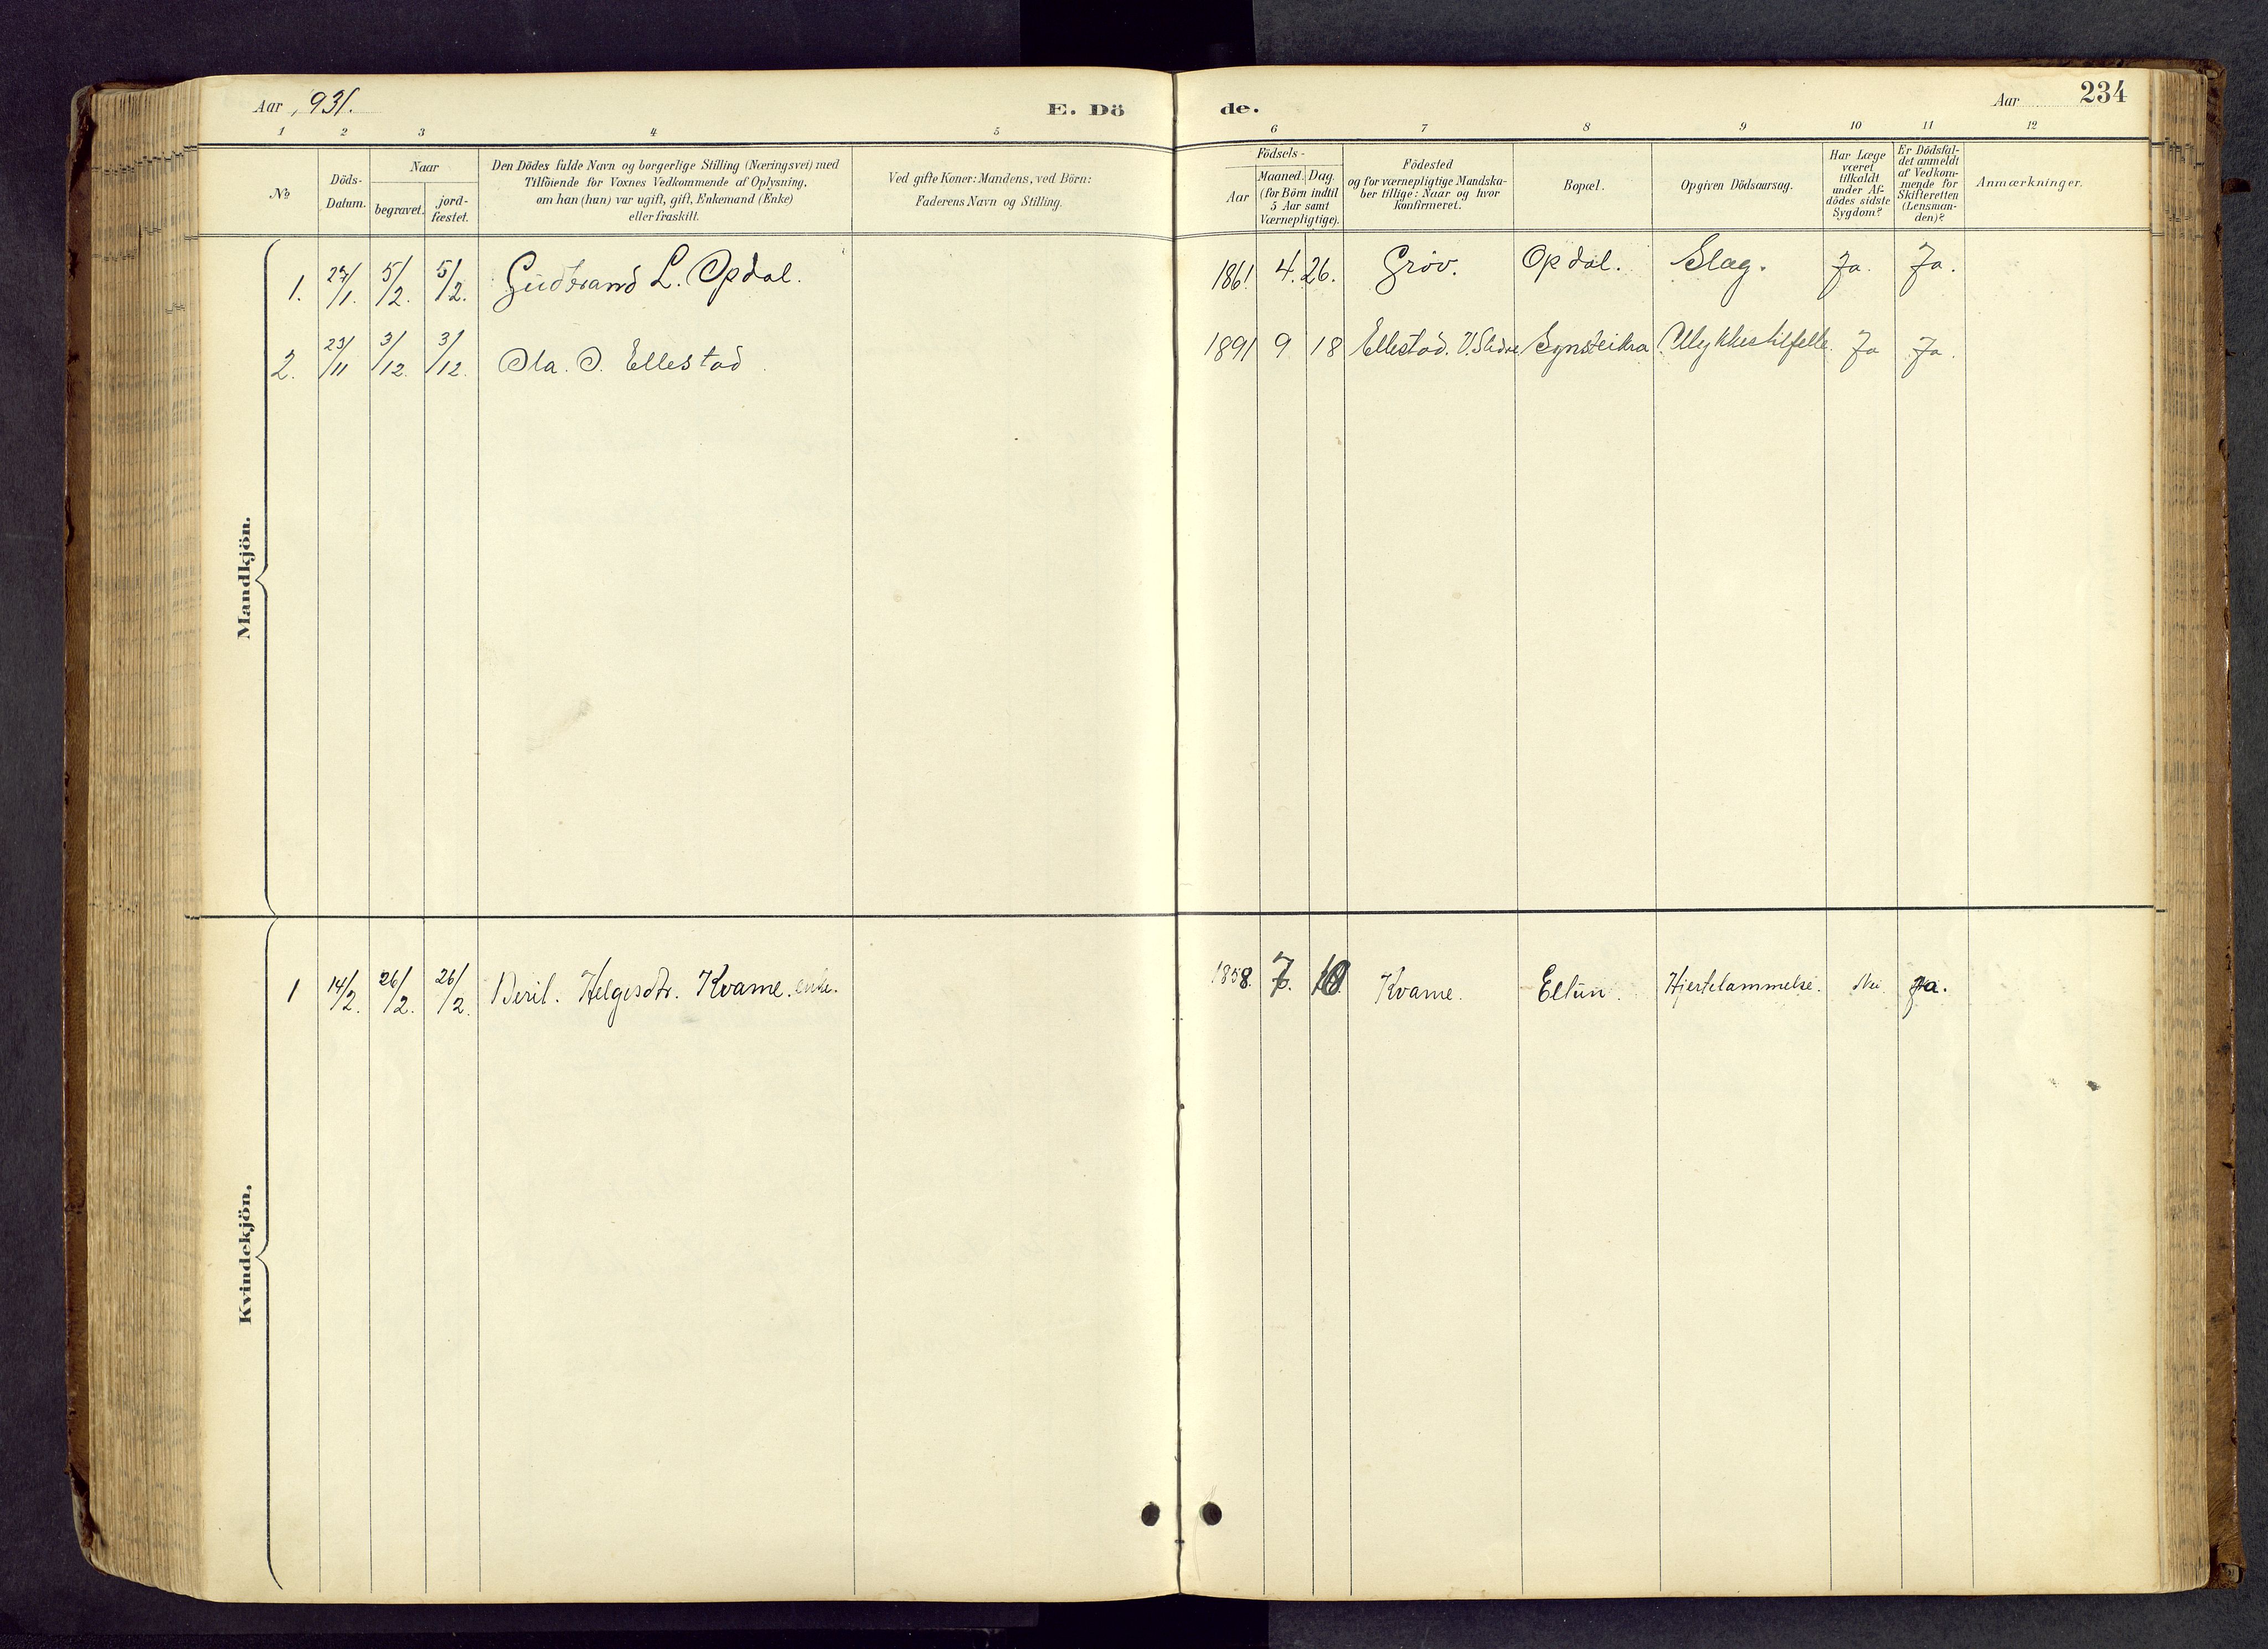 Aar 1931.
E. Dö
de.
Aar
234
1 2 3 4 5 6 7 8 9 10 11 12
No
Döds-
Datum.
Naar
begravet.
jord-
fæstet.
Den Dödes fulde Navn og borgerlige Stilling (Næringsvei) med
Tilföiende for Voxnes Vedkommende af Oplysning,
om han (hun) var ugift, gift, Enkemand (Enke)
eller fraskilt.
Ved gifte Koner: Mandens, ved Börn:
Faderens Navn og Stilling.
Födsels-
Aar
Maaned. Dag.
(for Börn indtil
5 Aar samt
Værnepligtige).
Födested
og for værnepligtige Mandska-
ber tillige: Naar og hvor
konfirmeret.
Bopæl.
Opgiven Dödsaarsag.
Har Læge
været
tilkaldt
under Af-
dödes sidste
Sygdom?
Er Dödsfal-
det anmeldt
af Vedkom-
mende for
Skifteretten
(Lensman-
den)?
Anmærkninger.
Mandkjön.
1. 27/1. 5/2. 5/2. Gudbrand L. Opdal. 1861 4. 26. Grøv. Opdal. Slag. Ja. Ja.
2. 23/11 3/12. 3/12. Ola. O. Ellestad. 1891 9 18 Ellestad. V. Slidre Synsteikra Ulykkestilfelle. Ja Ja.
Kvindekjön.
1 14/2. 26/2. 26/2. Beril. Helgesdtr. Kvame. enke. 1858. 7. Kvame. Eltun. Hjertelammelse. Nei. Ja.